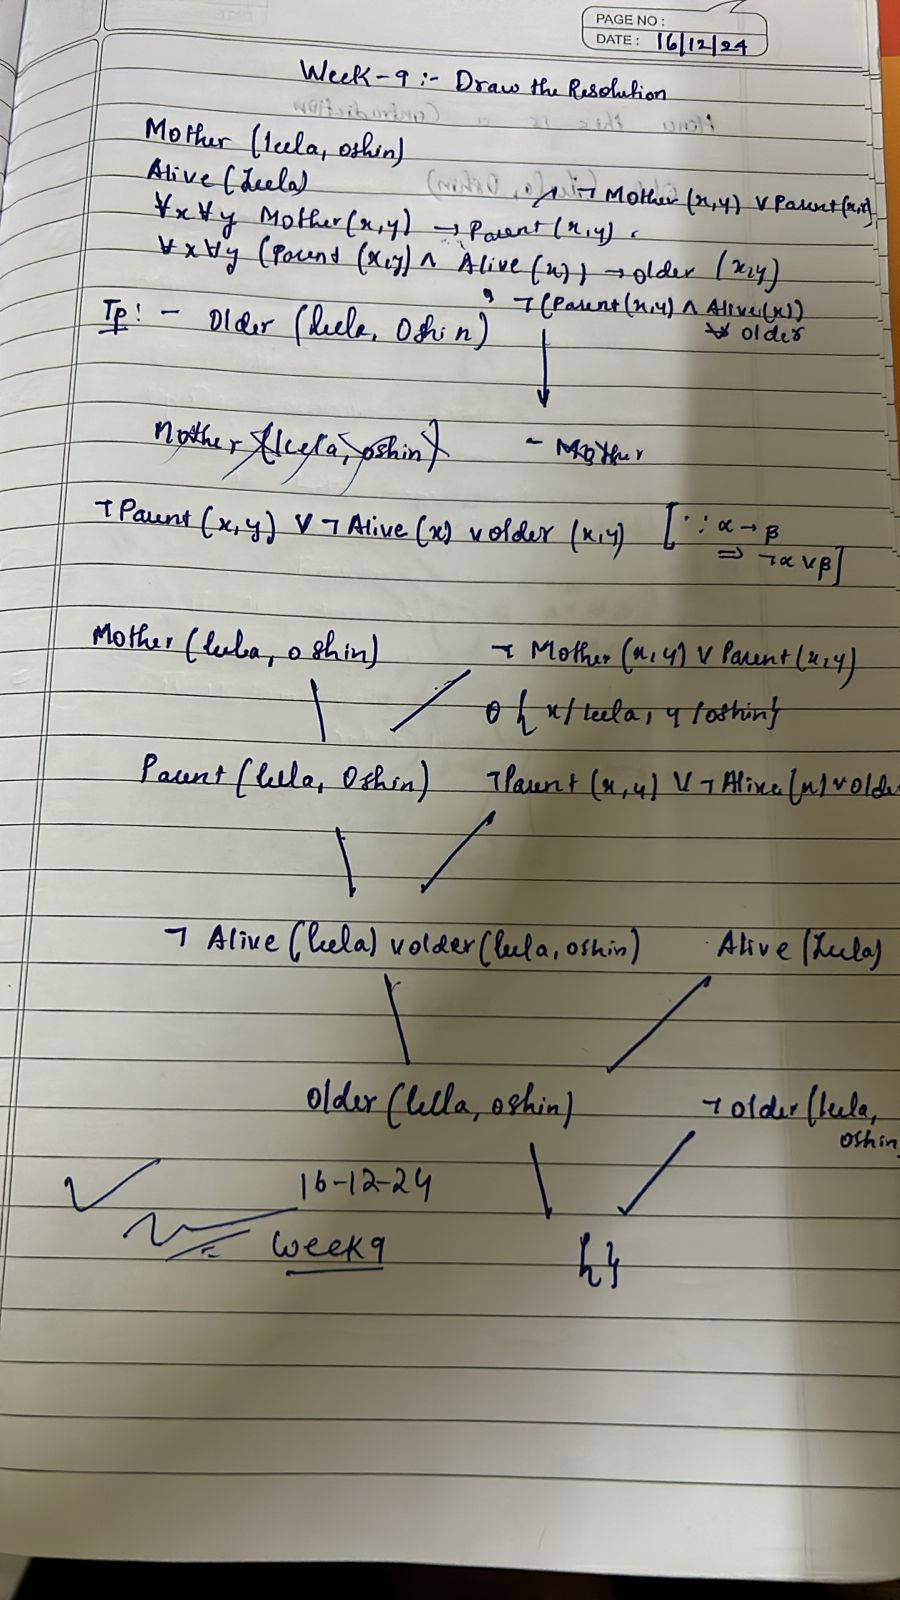 PAGE NO :
DATE : 16/12/24
Week-9 :- Draw the Resolution
Mother (leela, oshin)
Alive (Leela)
¬ Mother (x,y) ∨ Parent (x,y)
∀x ∀y Mother (x,y) → Parent (x,y)
∀x ∀y (Parent (x,y) ∧ Alive (x)) → older (x,y)
¬ (Parent (x,y) ∧ Alive (x))
∨ older
Tp : - Older (leela, Oshin)
Mother (leela, oshin)
- Mother
¬ Parent (x,y) ∨ ¬ Alive (x) ∨ older (x,y) [∵ α → β
⇒ ¬α ∨ β]
Mother (leela, oshin) ¬ Mother (x,y) ∨ Parent (x,y)
θ { x/leela, y/oshin}
Parent (leela, Oshin) ¬ Parent (x,y) ∨ ¬ Alive (x) ∨ olde
¬ Alive (leela) ∨ older (leela, oshin) Alive (Leela)
Older (leela, oshin) ¬ older (leela,
oshin
16-12-24
Week 9
{ }